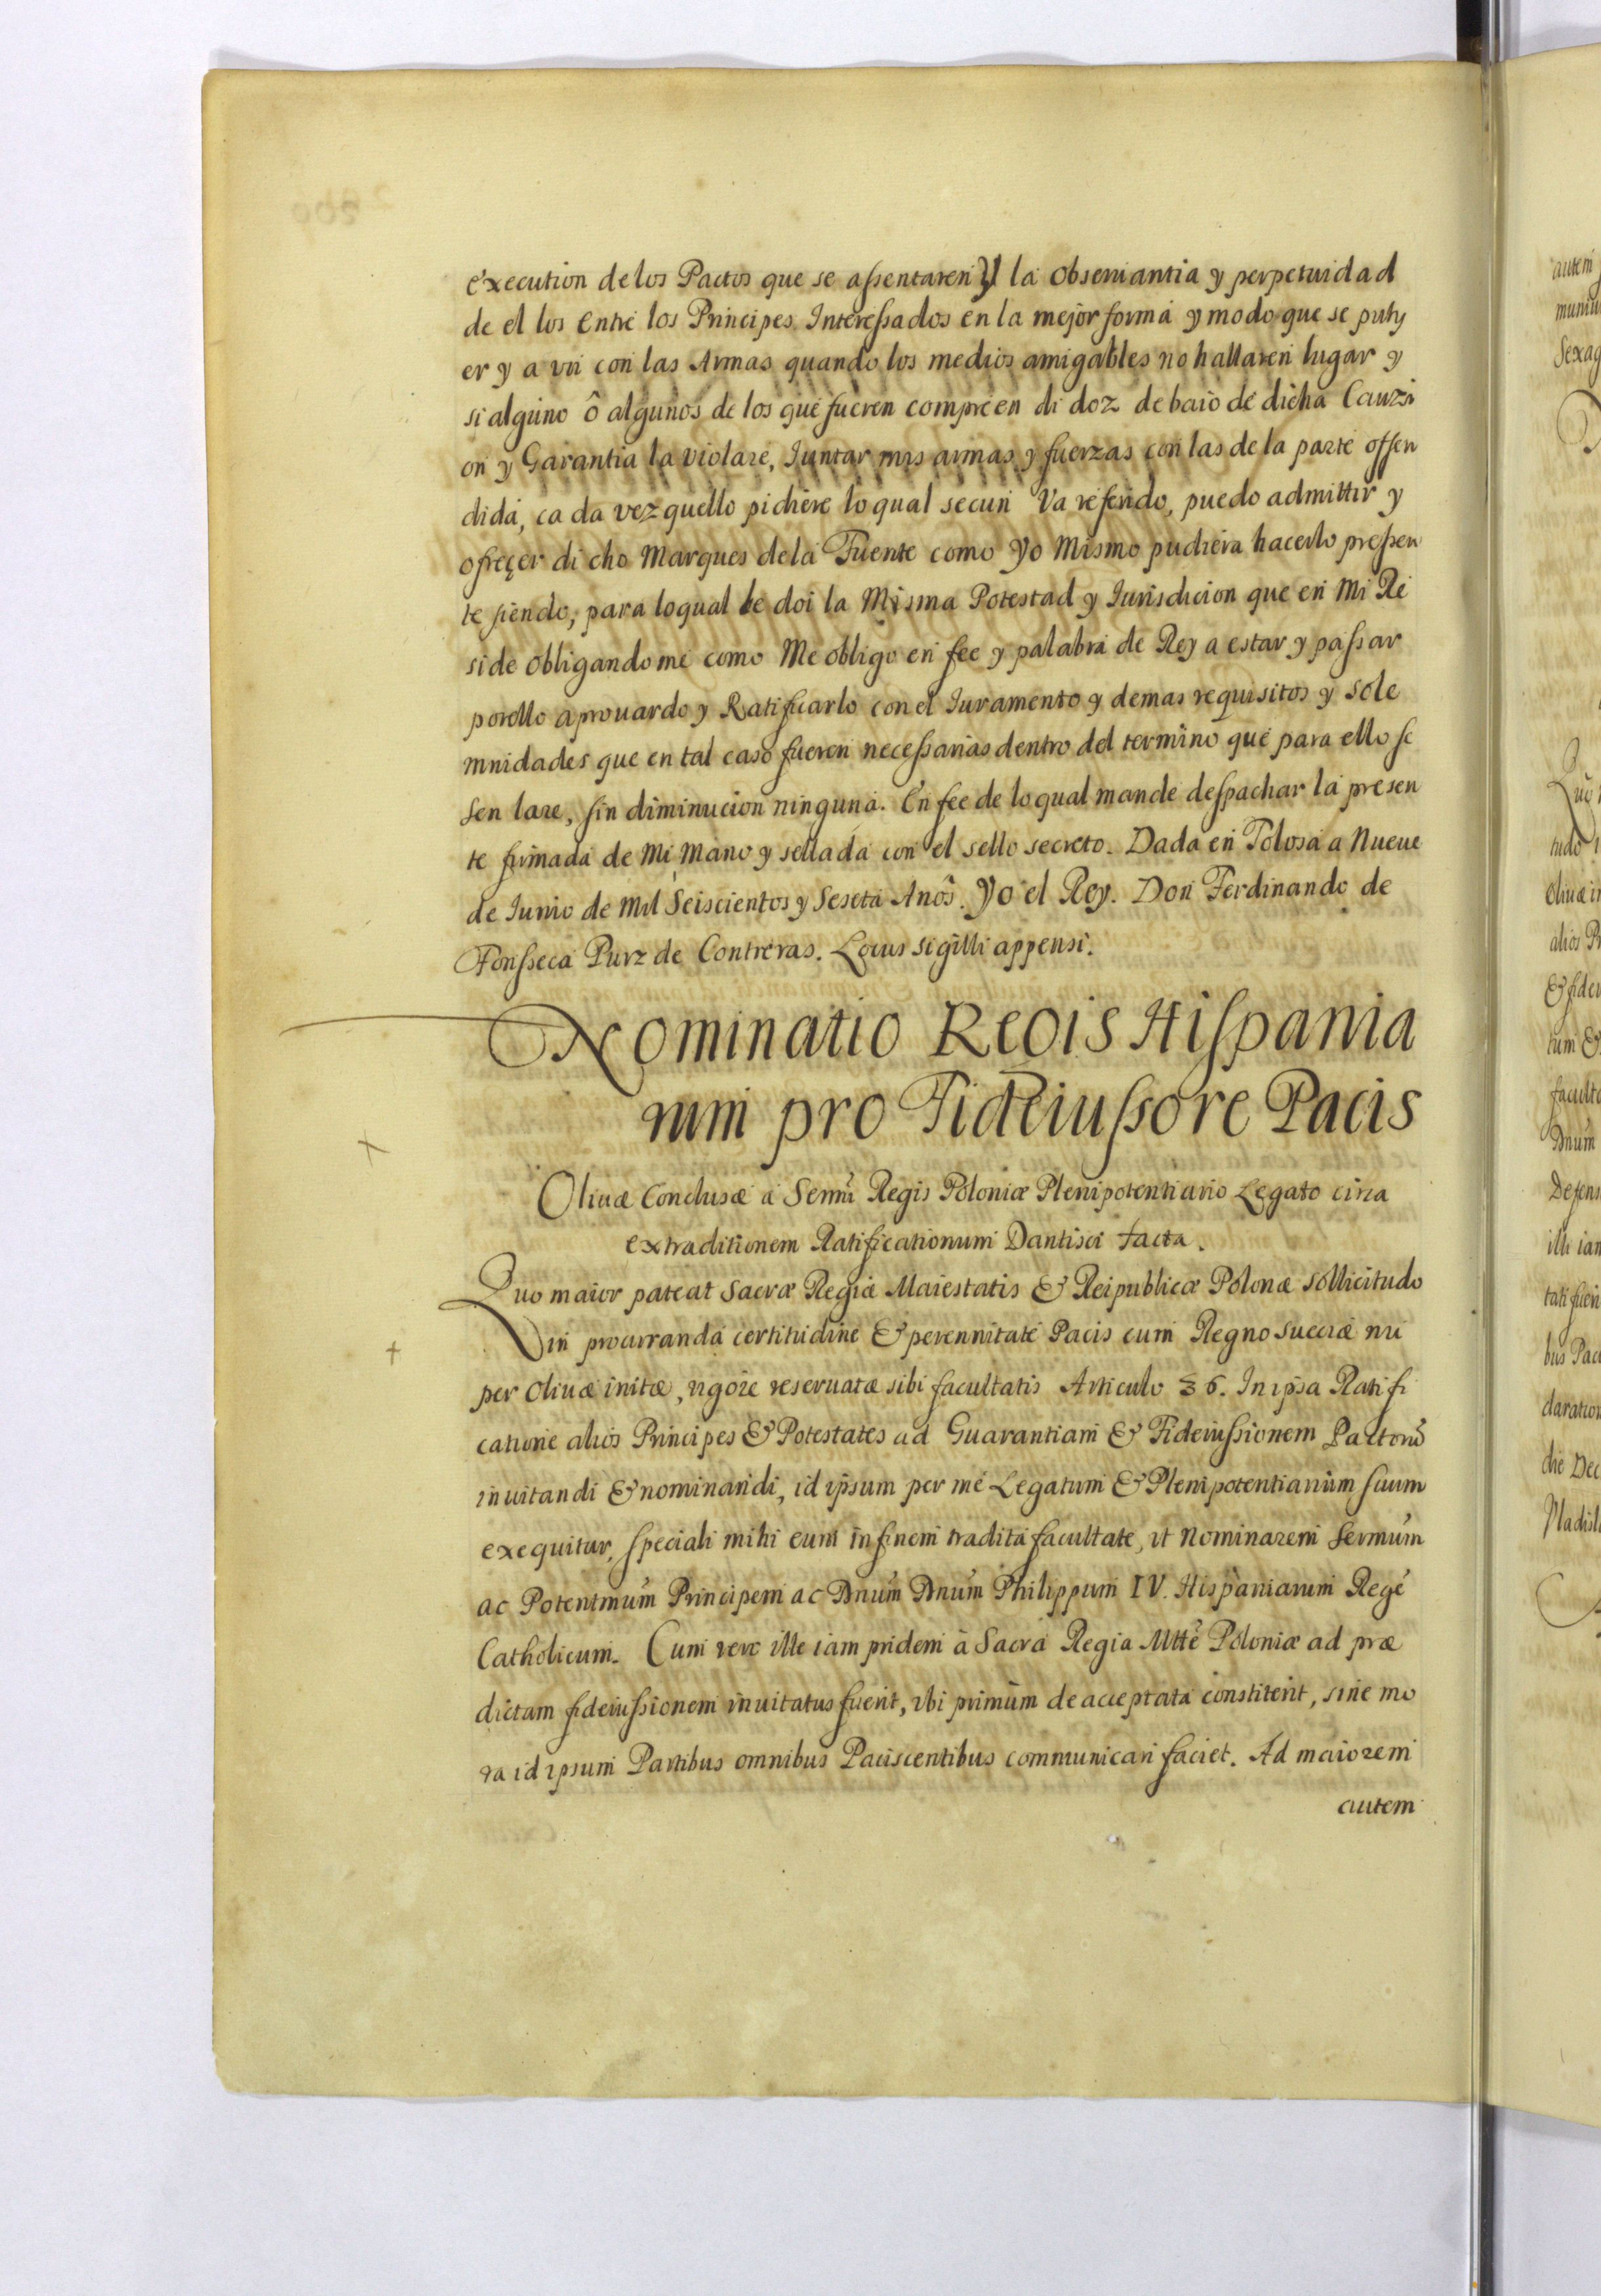 execution de los Pactos que se assentaren Y la obseruantia y perpetuidad
de el los Entre los Principes Interessados en la mejor forma y modo que se puty
er y a vn con las Armas quando los medios amigables no hallaren lugar y
si alguno ô algunos de los que fueren compreen di doz debaio de dicha Cauzi
on y Garantia la violare, Iuntar mis armas y fuerzas con las de la parte offen
dida, ca da vez quello pidiere lo qual secun Va referido, puedo admittir y
ofreçer di cho Marques dela Fuente como yo Mismo pudiera hacerlo pressen
te siendo, para loqual le doi la Misma Potestad y Iurisdicion que en Mi Re
side obligandome como Me obligo en fee y palabra de Rey a estar y passar
porello aprouardo y Ratificarlo con el Iuramento y demas requisitos y sole
mnidades que en tal caso fueren necessarias dentro del termino que para ello se
sen lare, sin diminucion ninguna. En fee de loqual mande despachar la presen
te firmada de Mi Mano y sellada con el sello secreto. Dada en Tolosa a Nueue
de Iunio de Mil Seiscientos y Seseta Anôs. Yo el Rey. Don Ferdinando de
Fonsseca Purz de Contreras. Locus sigilli appensi.
Nominatio Regis Hispania
rum pro Fideiussore Pacis
Oliuæ Conclusæ a Sermi Regis Poloniæ Plenipotentiario Legato circa
extraditionem Ratificationum Dantisci facta.
Quo maior pateat Sacræ Regiæ Maiestatis & Reipublicæ Polonæ sollicitudo
in procurranda certitudine & perennitate Pacis cum Regno Sueciæ nu
per Oliuæ initæ, vigore reseruatæ sibi facultatis Articulo 36. In ipsa Ratifi
catione alios Principes & Potestates ad Guarantiam & Fideiussionem Pactorũ
inuitandi & nominandi, id ipsum per me Legatum & Plenipotentiarium suum
exequitur, speciali mihi eum in finem tradita facultate, vt Nominarem Sermum
ac Potentmum Principem ac Dnum Dnum Philippum IV. Hispaniarum Regé
Catholicum. Cum vero ille iam pridem à Sacra Regia Mtte Poloniæ ad præ
dictam fideiussionem inuitatus fuerit, vbi primùm de acceptata constiterit, sine mo
ra id ipsum Partibus omnibus Paciscentibus communicari faciet. Ad maiorem
autem